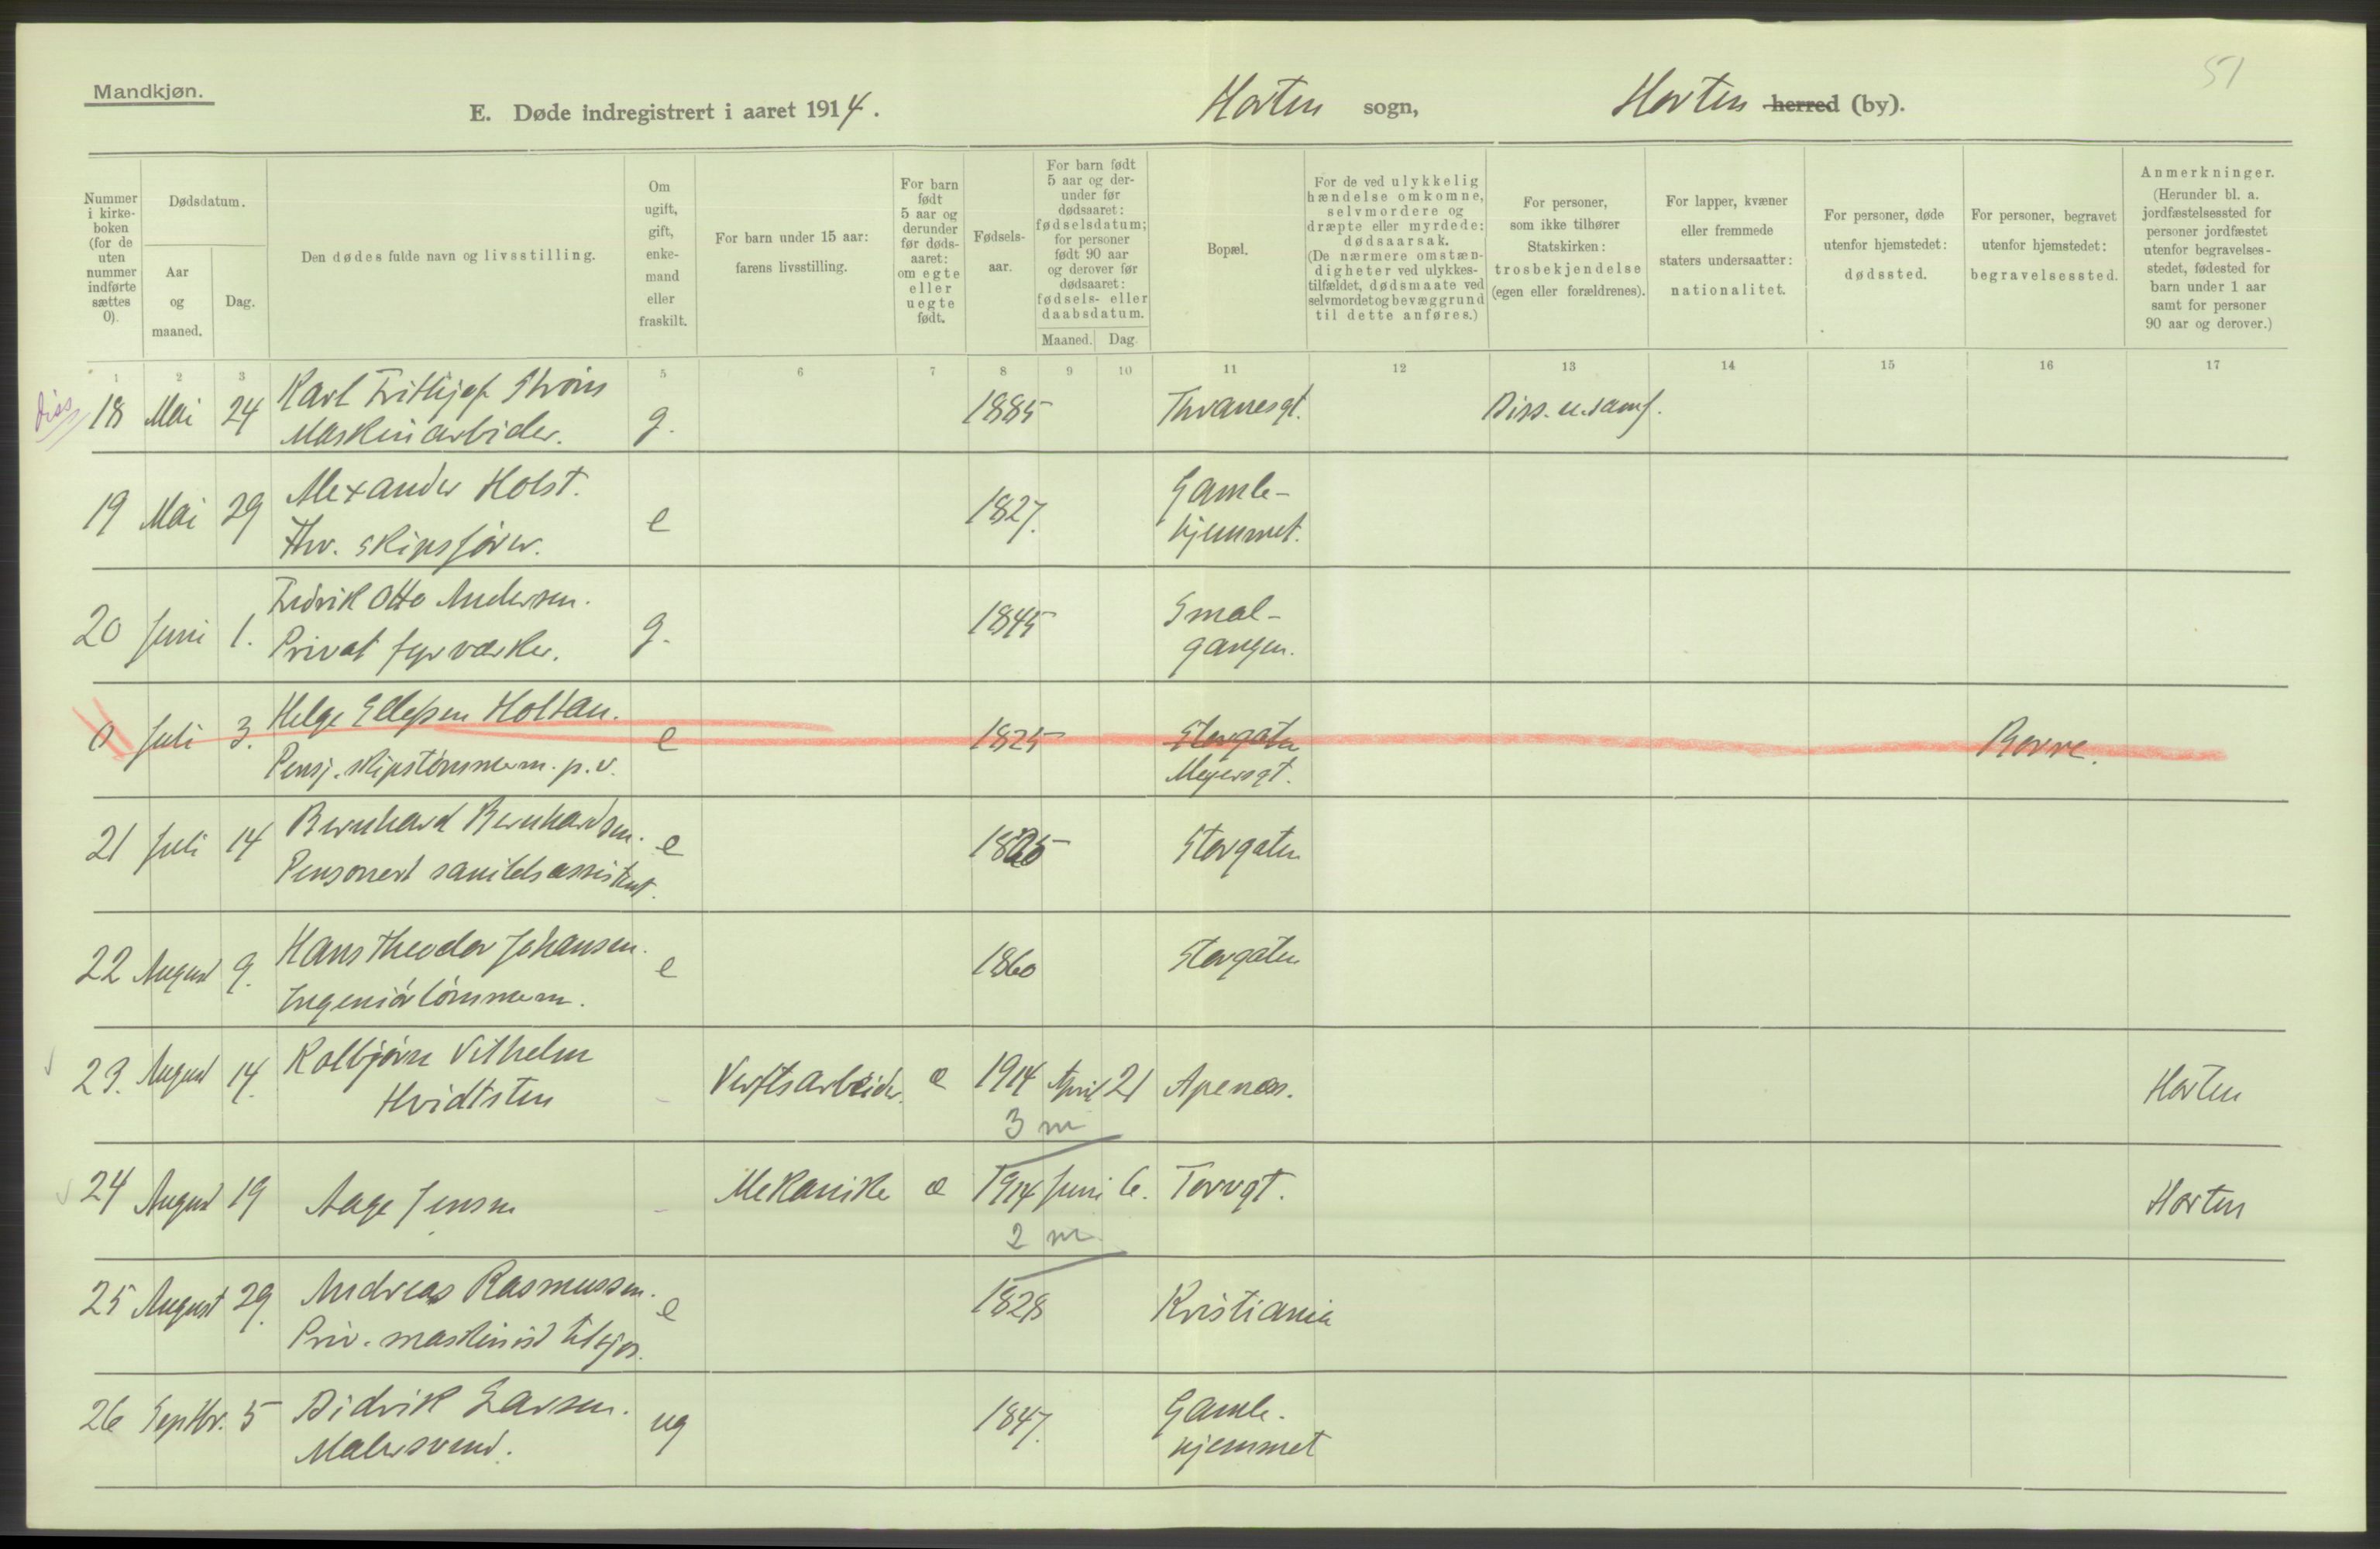 51
Mandkjøn.
E. Døde indregistrert i aaret 1914. Horten sogn, Horten herred (by).
Nummer i kirkeboken (for de uten nummer indførte sættes 0).
Dødsdatum.
Aar og maaned.
Dag.
Den dødes fulde navn og livsstilling.
Om ugift, gift, enkemand eller fraskilt.
For barn under 15 aar: farens livsstilling.
For barn født 5 aar og derunder før dødsaaret: om egte eller uegte født.
Fødselsaar.
For barn født 5 aar og derunder før dødsaaret: fødselsdatum; for personer født 90 aar og derover før dødsaaret: fødsels- eller daabsdatum.
Maaned. Dag.
Bopæl.
For de ved ulykkelig hændelse omkomne, selvmordere og dræpte eller myrdede: dødsaarsak. (De nærmere omstændigheter ved ulykkestilfældet, dødsmaate ved selvmordet og bevæggrund til dette anføres.)
For personer, som ikke tilhører Statskirken: trosbekjendelse (egen eller forældrenes).
For lapper, kvæner eller fremmede staters undersaatter: nationalitet.
For personer, døde utenfor hjemstedet: dødssted.
For personer, begravet utenfor hjemstedet: begravelsessted.
Anmerkninger. (Herunder bl. a. jordfæstelsessted for personer jordfæstet utenfor begravelsesstedet, fødested for barn under 1 aar samt for personer 90 aar og derover.)
1 2 3 5 6 7 8 9 10 11 12 13 14 15 16 17
Diss 18 Mai 24 Karl Frithjof Strøm g. 1885 Thranesgt. Diss. u. samf.
Maskinarbider.
19 Mai 29 Alexander Holst. e 1827. Gamle-
Fhv. skipsfører. hjemmet.
20 Juni 1. Fredrik Otto Andersen. g. 1845 Smal-
Privat fyrværker. gangen.
0 Juli 3. Helge Ellefsen Holtan. e 1825 Storgaten Borre.
Pensj. skipstømmerm. p. v. Meyersgt.
21 Juli 14 Bernhard Bernhardsen. e Storgaten
Pensonert sanitetsassistent.
22 August 9. Hans Theodor Johansen. e 1860 Storgaten
Ingeniørtømmerm.
23. August 14. Kolbjørn Vilhelm Verftsarbeider. æ 1914 April 21 Apenæs. Horten
Hvidtsten - 3 m
24 August 19 Aage Jensen - Mekaniker æ 1914 Juni 6. Torvgt. Horten
2 m
25 August 29. Andreas Rasmussen. e 1828 Kristiania
Priv. maskinist til sjøs.
26 Septbr. 5 Didrik Larsen. ug 1847. Gamle-
Malersvend. hjemmet